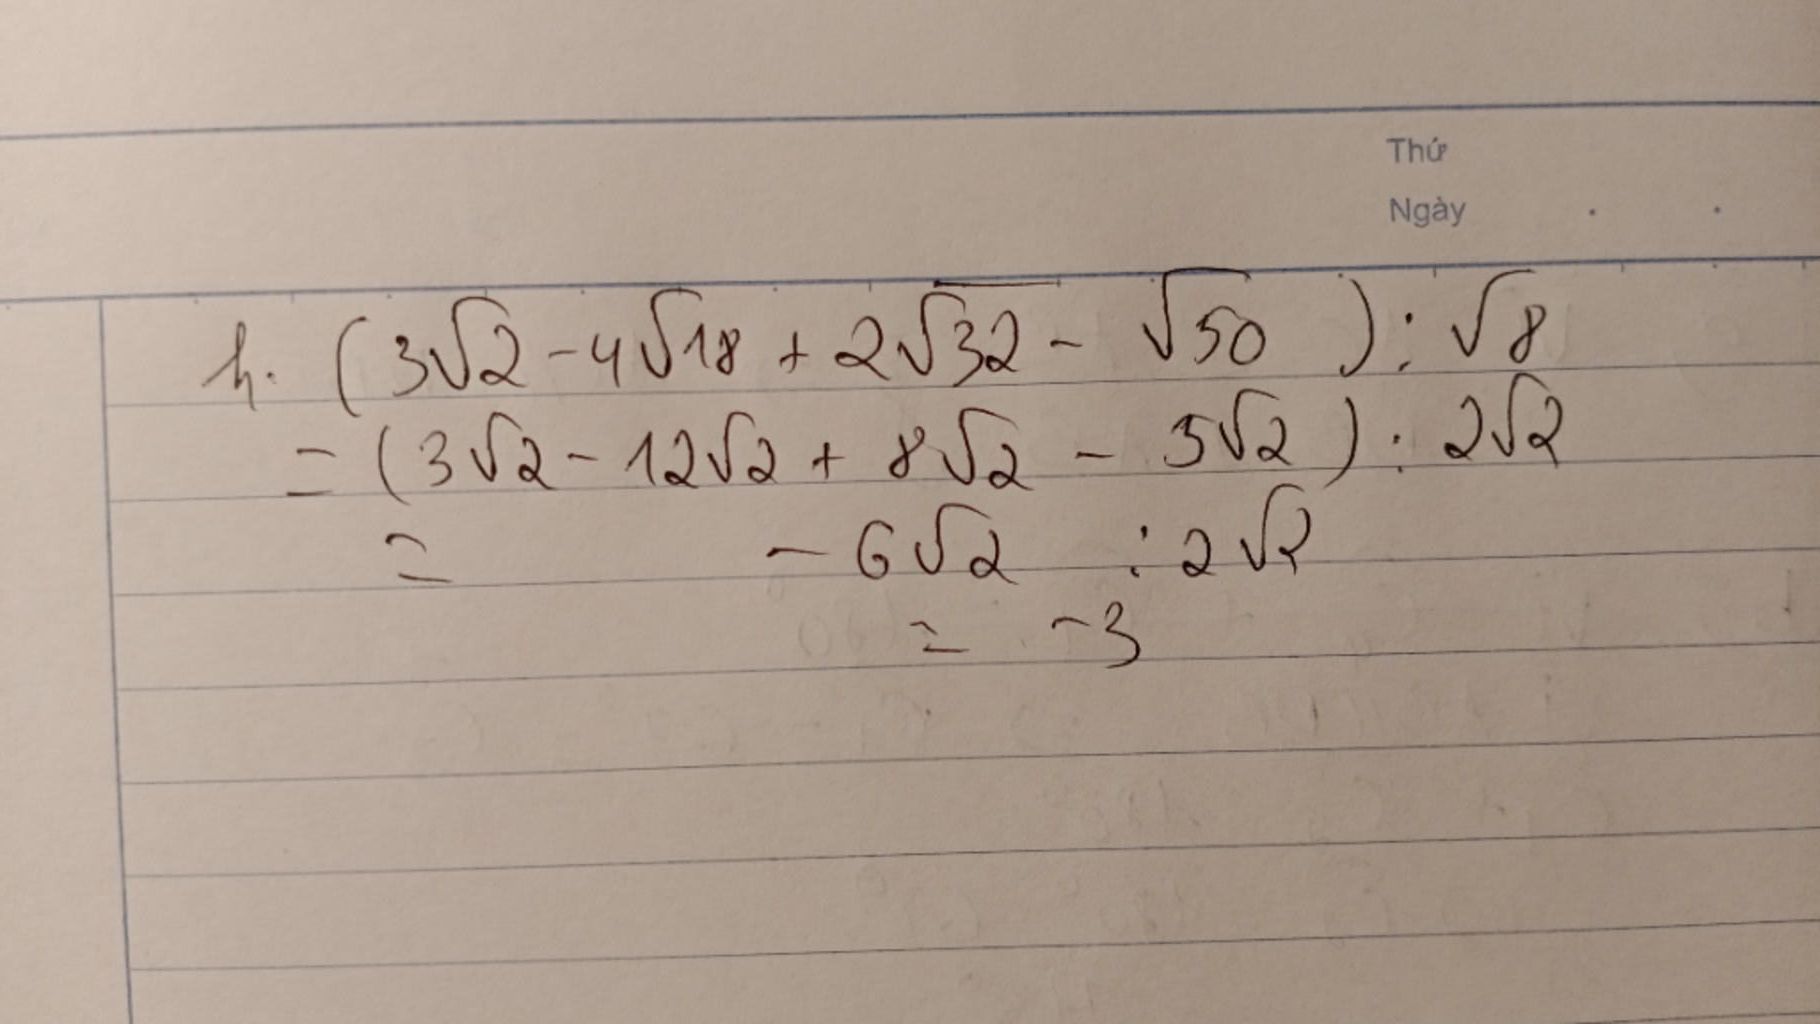 Thứ
Ngày . .
h. (3√2 - 4√18 + 2√32 - √50 ) : √8
= (3√2 - 12√2 + 8√2 - 5√2 ) : 2√2
= - 6√2 : 2√2
= -3